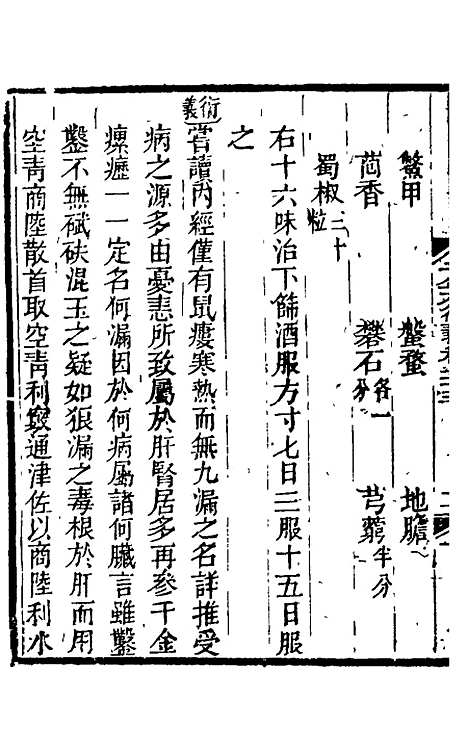 鱉甲　　螌蝥　　地膽
茴香　　礬石各一分　　芎藭半分
蜀椒三十粒
右十六味治下篩酒服方寸七日三服十五日服
之
衍義
嘗讀內經僅有鼠瘻寒熱而無九漏之名詳推受
病之源多由憂恚所致屬於肝腎居多再參千金
瘰癧一一定名何漏因於何病屬諸何臟言雖鑿
鑿不無碔砆混玉之疑如狼漏之毒根於肝而用
空青商陸散首取空青利竅通津佐以商陸利水